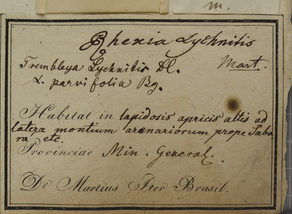 m.
Rhexia Lychnitis
Mart.
Trembleya Lychnitis Dl.
α. parvifolia Bg.
Habitat in lapidosis apricis altis ad
latera montium arenariorum prope Saba
ra etc.
Provinciae Min. General.
Dr. Martius Iter Brasil.